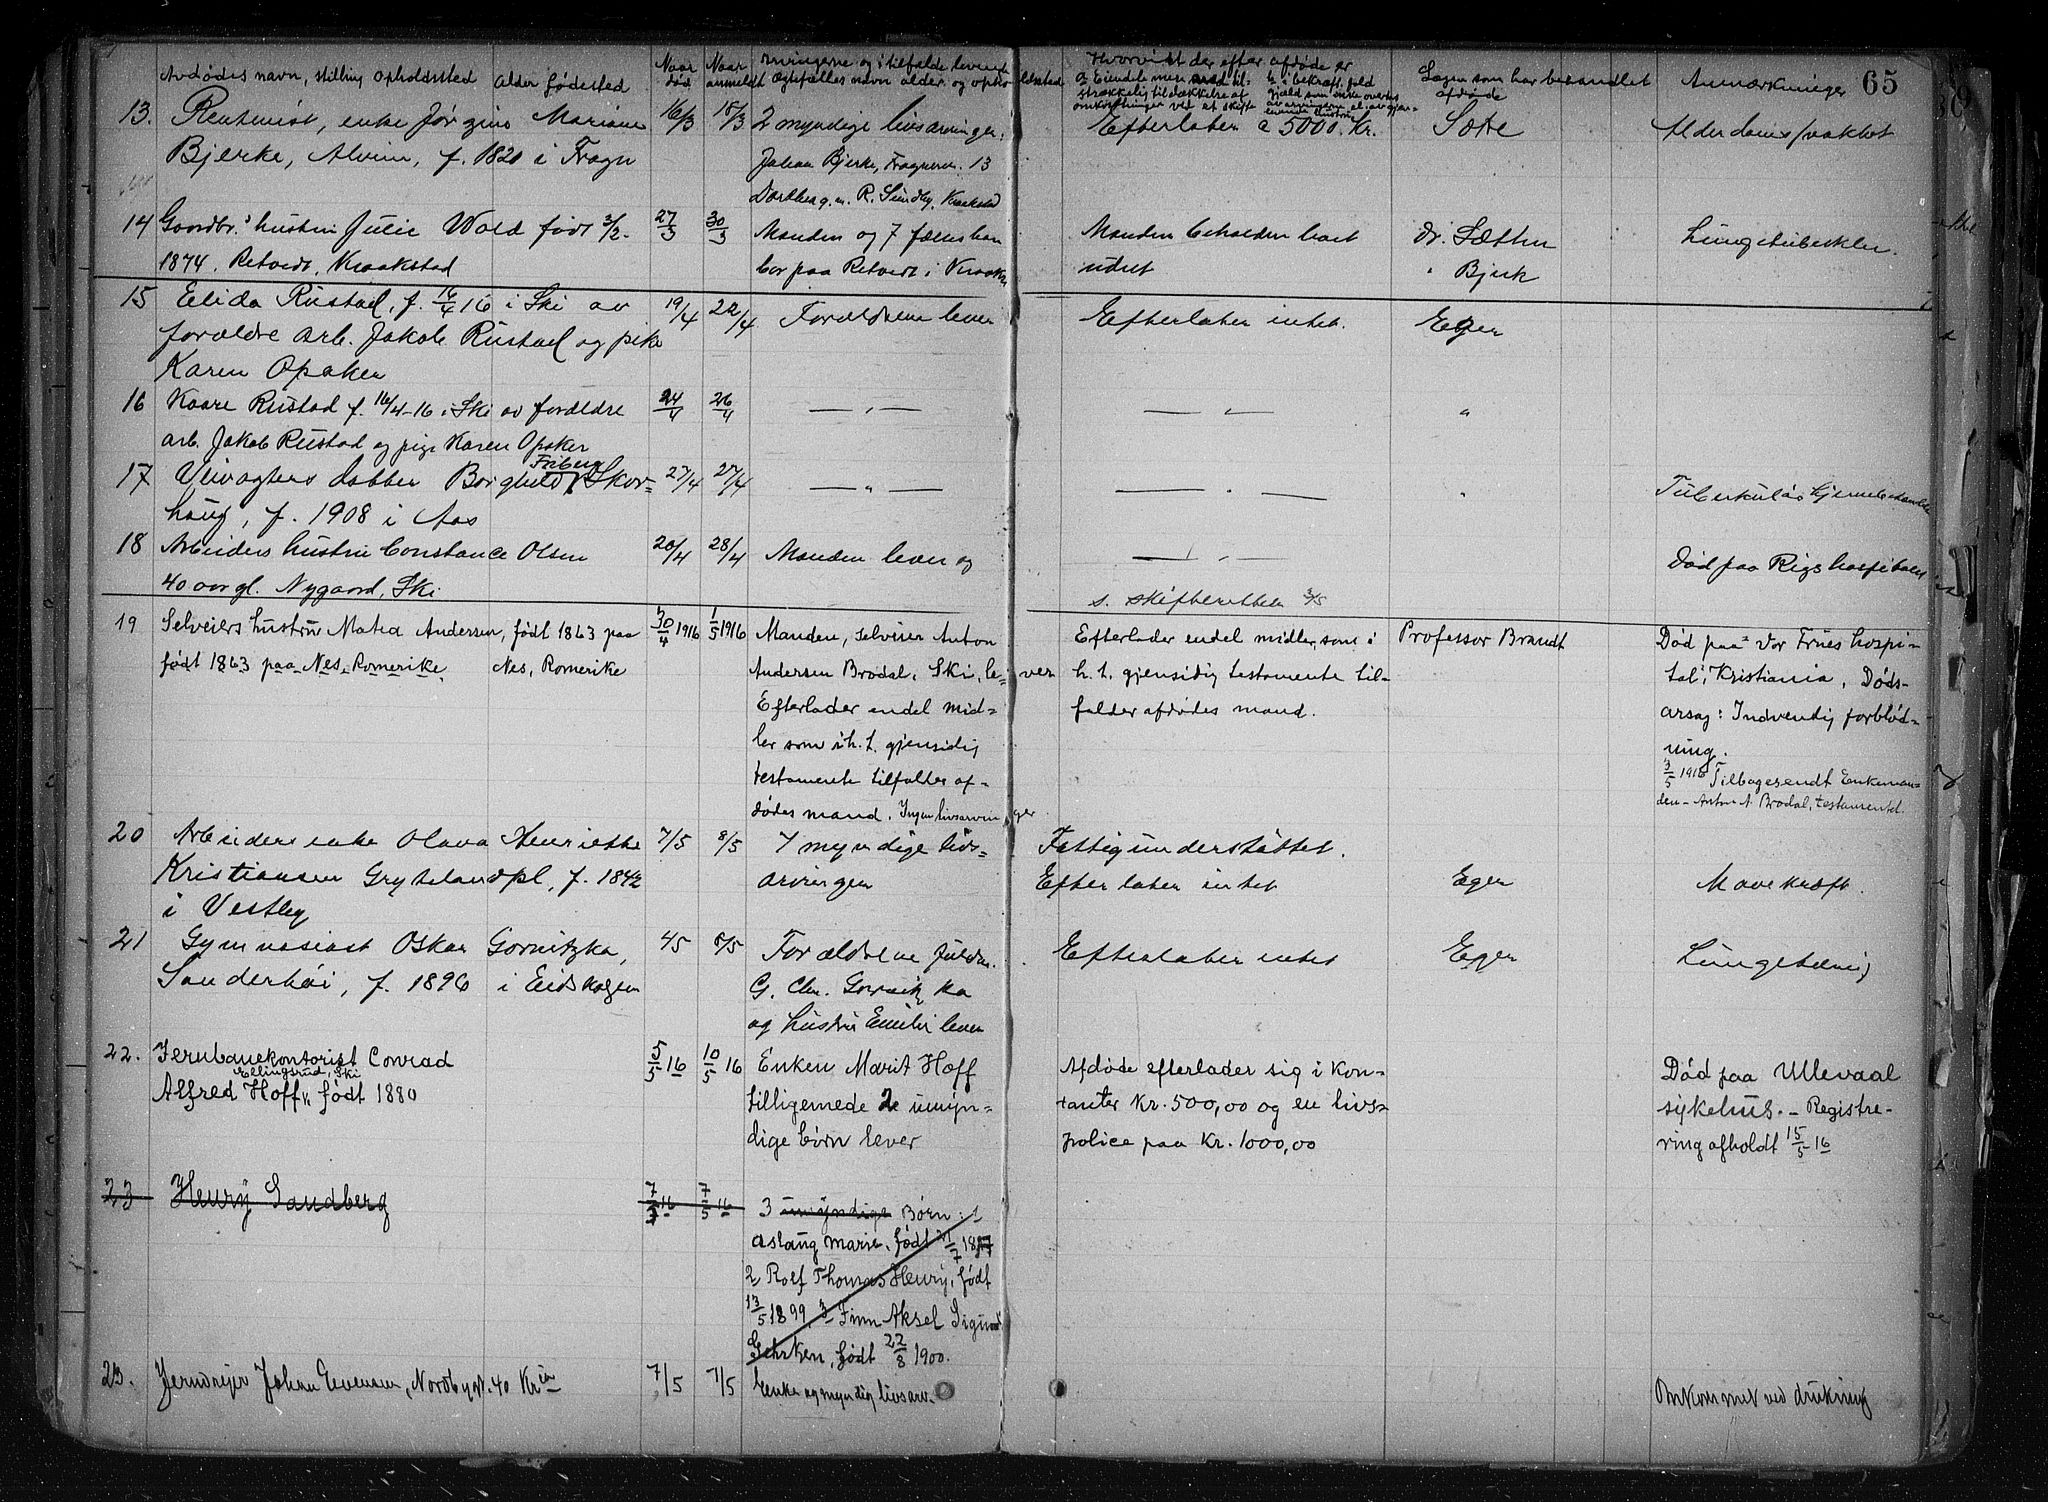 Avdødes navn, stilling opholdssted Alder fødested Naar død Naar anmeldt Arvingerne og i tilfælde levende ægtefælles navn alder og opholdssted Hvorvidt der efter afdøde er Lægen som har behandlet afdøde Anmærkninger 65
13. Rentenist, enke Jørgine Mariane 16/3 18/3 2 myndige livsarvinger. Efterlater c 5000 kr. Alderdomssvakhet
Bjerke, Alvim, f. 1820 i Frogn Johan Bjerke, Fragnerv. 13
R. Sundby, Kraakstad
14 Gaardbr.s hustru Julie Wold født 3/2- 27/3 30/3 Manden og 7 fælles barn Manden beholder boet dr. Sætter Lungetuberkler.
1874. Retvedt, Kraakstad bor paa Retvedt i Kraaks udelt " Bjerk
15 Elida Rustad, f. 16/4 16 i Ski av 19/4 22/4 Forældrene lever Efterlater intet. Eger
forældre arb. Jakob Rustad og pike
Karen Opaker
16 Kaare Rustad f. 16/4-16 i Ski av forældre 24/4 26/4 — " — — " — "
arb. Jakob Rustad og pige Karen Opaker
17 Veivogters datter Borghild Friberg Skor= 27/4 27/4 — " — — " — " Tuberkuløs hjernebetændelse
haug, f. 1908 i Aas
18 Arbeiders hustru Constance Olsen 20/4 28/4 Manden lever og — " — Død paa Rigshospitalet
40 aar gl. Nygaard, Ski s. skifteretten 3/5
19 Selveiers hustru Matea Andersen, født 1863 paa 30/4 1916 1/5 1916 Manden, selveier Anton Efterlader endel midler, som i Professor Brandt Død paa Vor Frues hospi-
født 1863 paa Nes, Romerike. Nes, Romerike Andersen Brodal, Ski, le=ver h. t. gjensidig testamente til= tal, Kristiania. Døds-
Efterlader endel mid= falder afdødes mand. arsag: Indvendig forblød-
ler som i h. t. gjensidig ning.
testamente tilfalter af- 3/5 1916 Tilbagesendt Enkeman-
dødes mand. Ingen livsarvinger den - Anton A. Brodal, testamentet.
20 Arbeiders enke Olava Henriette 7/5 8/5 7 myndige livs= Fattigunderstøttet.
Kristiansen Grytelandpl, f. 1842 arvinger Efterlater intet Eger Mavekræft.
i Vestby
21 Gymnasiast Oskar Gornitzka, 4/5 8/5 Forældrene Efterlater intet Eger Lungetæring
Sonderhøi, f. 1896 i Eidskogen G. Chr. Gornitzka
og hustru Emilie lever
22. Jernbanekontorist Conrad 5/5 16 10/5 16 Enken Marit Hoff Afdøde efterlader sig i kon- Død paa Ullevaal
Ellingsrud, Ski
Alfred Hoff, født 1880 tilligemede 2 umyn= tanter kr. 500,00 og en livs= sykehus. - Registre-
dige børn lever police paa kr. 1000,00 ring afholdt 15/5 16
23 Henry Sandberg 7/5 16 7/5 16 3 umyndige Børn: 1
Aslaug Marie, født 21/7 18
2 Rolf Thomas Henry, født
13/5 1899 3 Finn Aksel Sigurd
Gehrken, født 22/8 1900.
23. Johan Evensen, Nordbygt. 40 Kr.ia 7/5 7/5 Enke og myndig livsarv. Omkommet ved drukning